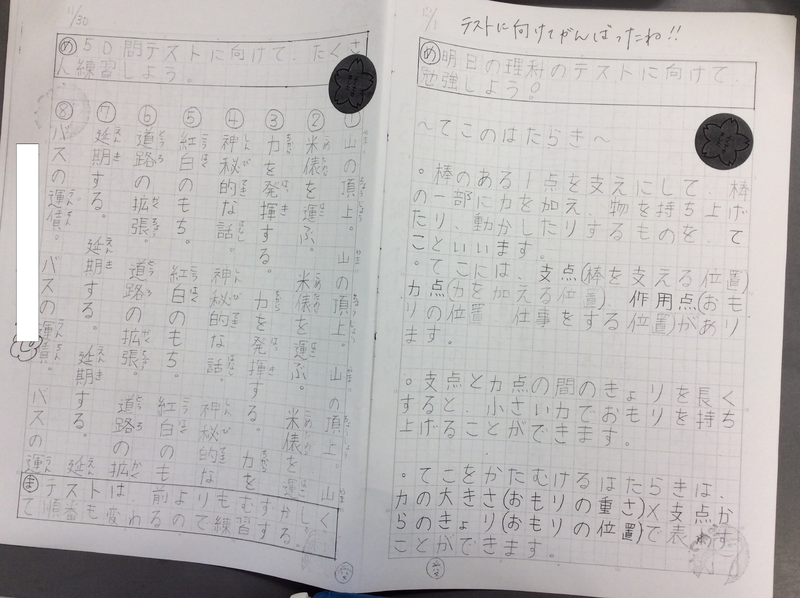 11/30
め 50問テストに向けて、たくさ
ん練習しよう。
①山の頂上。山の頂上。山の頂上。山
②米俵を運ぶ。米俵を運ぶ。米俵を運
③力を発揮する。力を発揮する。力を
④神秘的な話。神秘的な話。神秘的な
⑤紅白のもち。紅白のもち。紅白のも
⑥道路の拡張。道路の拡張。道路の拡
⑦延期する。延期する。延期する。延
⑧バスの運賃。バスの運賃。バスの運
ま テストは、前よりもむずかしく
て順番も変わるので練習する。
12/1
テストに向けてがんばったね!!
め 明日の理科のテストに向けて、
勉強しよう!
〜てこのはたらき〜
。棒のある1点を支えにして、棒
の一部に力を加え、物を持ち上げ
たり、動かしたりするものを、て
こといいます。
。てこには、支点(棒を支える位置)
力点(力を加える位置)、作用点(おも
りの位置 仕事をする位置)があり
ます。
。支点と力点の間のきょりを長く
すると、小さい力でおもりを持ち
上げることができます。
。てこをかたむけるはたらきは、
力の大きさ(おもりの重さ)×支点か
らのきょり(おもりの位置)で表わす
ことができます。